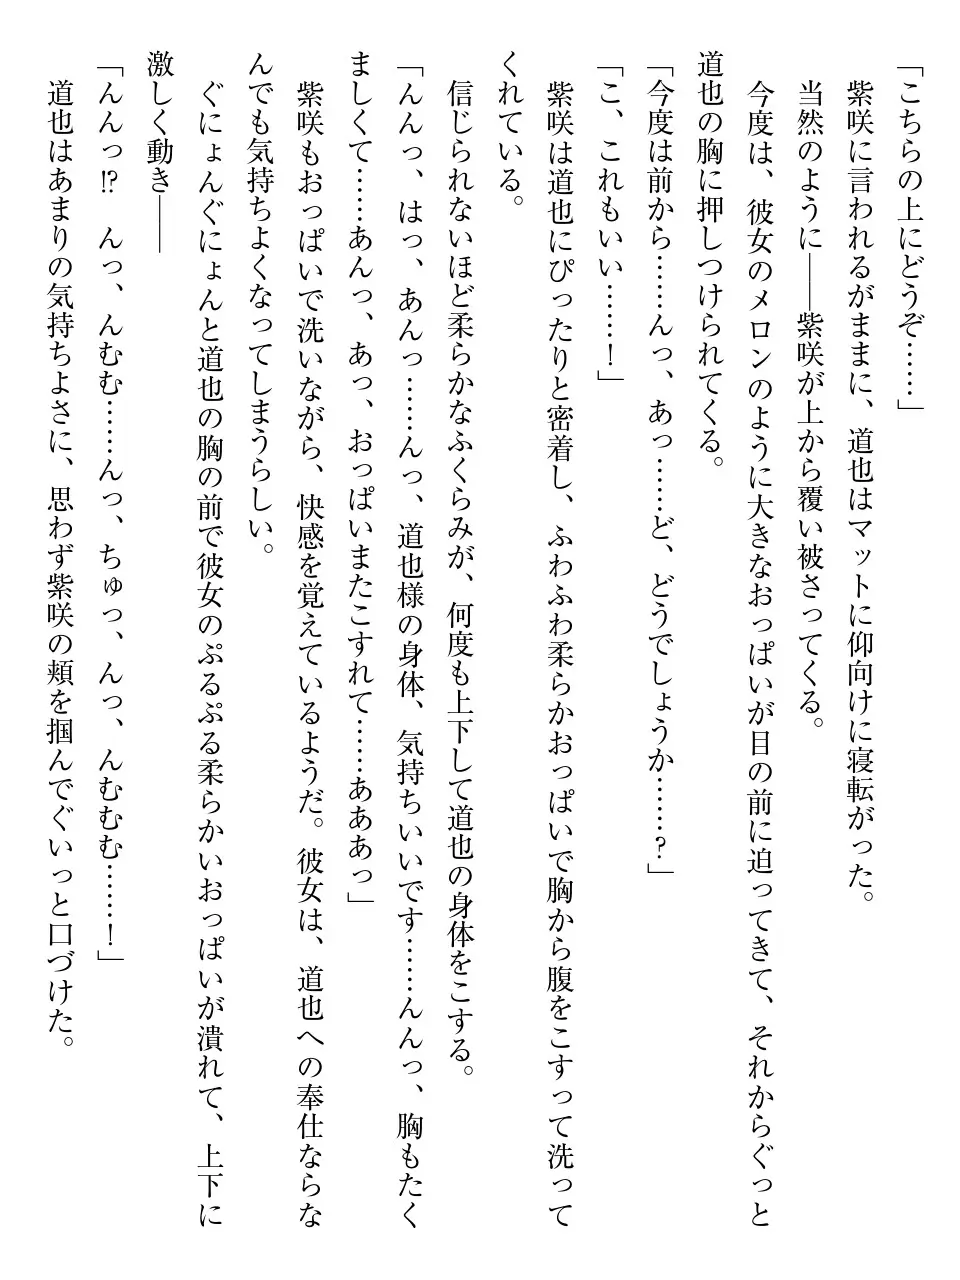 「こちらの上にどうぞ……」
　紫咲に言われるがままに、道也はマットに仰向けに寝転がった。
　当然のように――紫咲が上から覆い被さってくる。
　今度は、彼女のメロンのように大きなおっぱいが目の前に迫ってきて、それからぐっと
道也の胸に押しつけられてくる。
「今度は前から……んっ、あっ……ど、どうでしょうか……？」
「こ、これもいい……！」
　紫咲は道也にぴったりと密着し、ふわふわ柔らかおっぱいで胸から腹をこすって洗って
くれている。
　信じられないほど柔らかなふくらみが、何度も上下して道也の身体をこする。
「んんっ、はっ、あんっ……んっ、道也様の身体、気持ちいいです……んんっ、胸もたく
ましくて……あんっ、あっ、おっぱいまたこすれて……あああっ」
　紫咲もおっぱいで洗いながら、快感を覚えているようだ。彼女は、道也への奉仕ならな
んでも気持ちよくなってしまうらしい。
　ぐにょんぐにょんと道也の胸の前で彼女のぷるぷる柔らかいおっぱいが潰れて、上下に
激しく動き――
「んんっ!?　んっ、んむむ……んっ、ちゅっ、んっ、んむむむ……！」
　道也はあまりの気持ちよさに、思わず紫咲の頬を掴んでぐいっと口づけた。